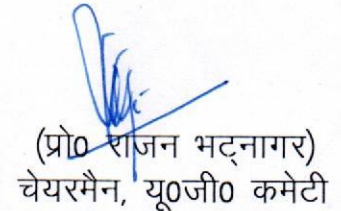 (प्रो0 राजन भट्नागर)
चेयरमैन, यू0जी0 कमेटी